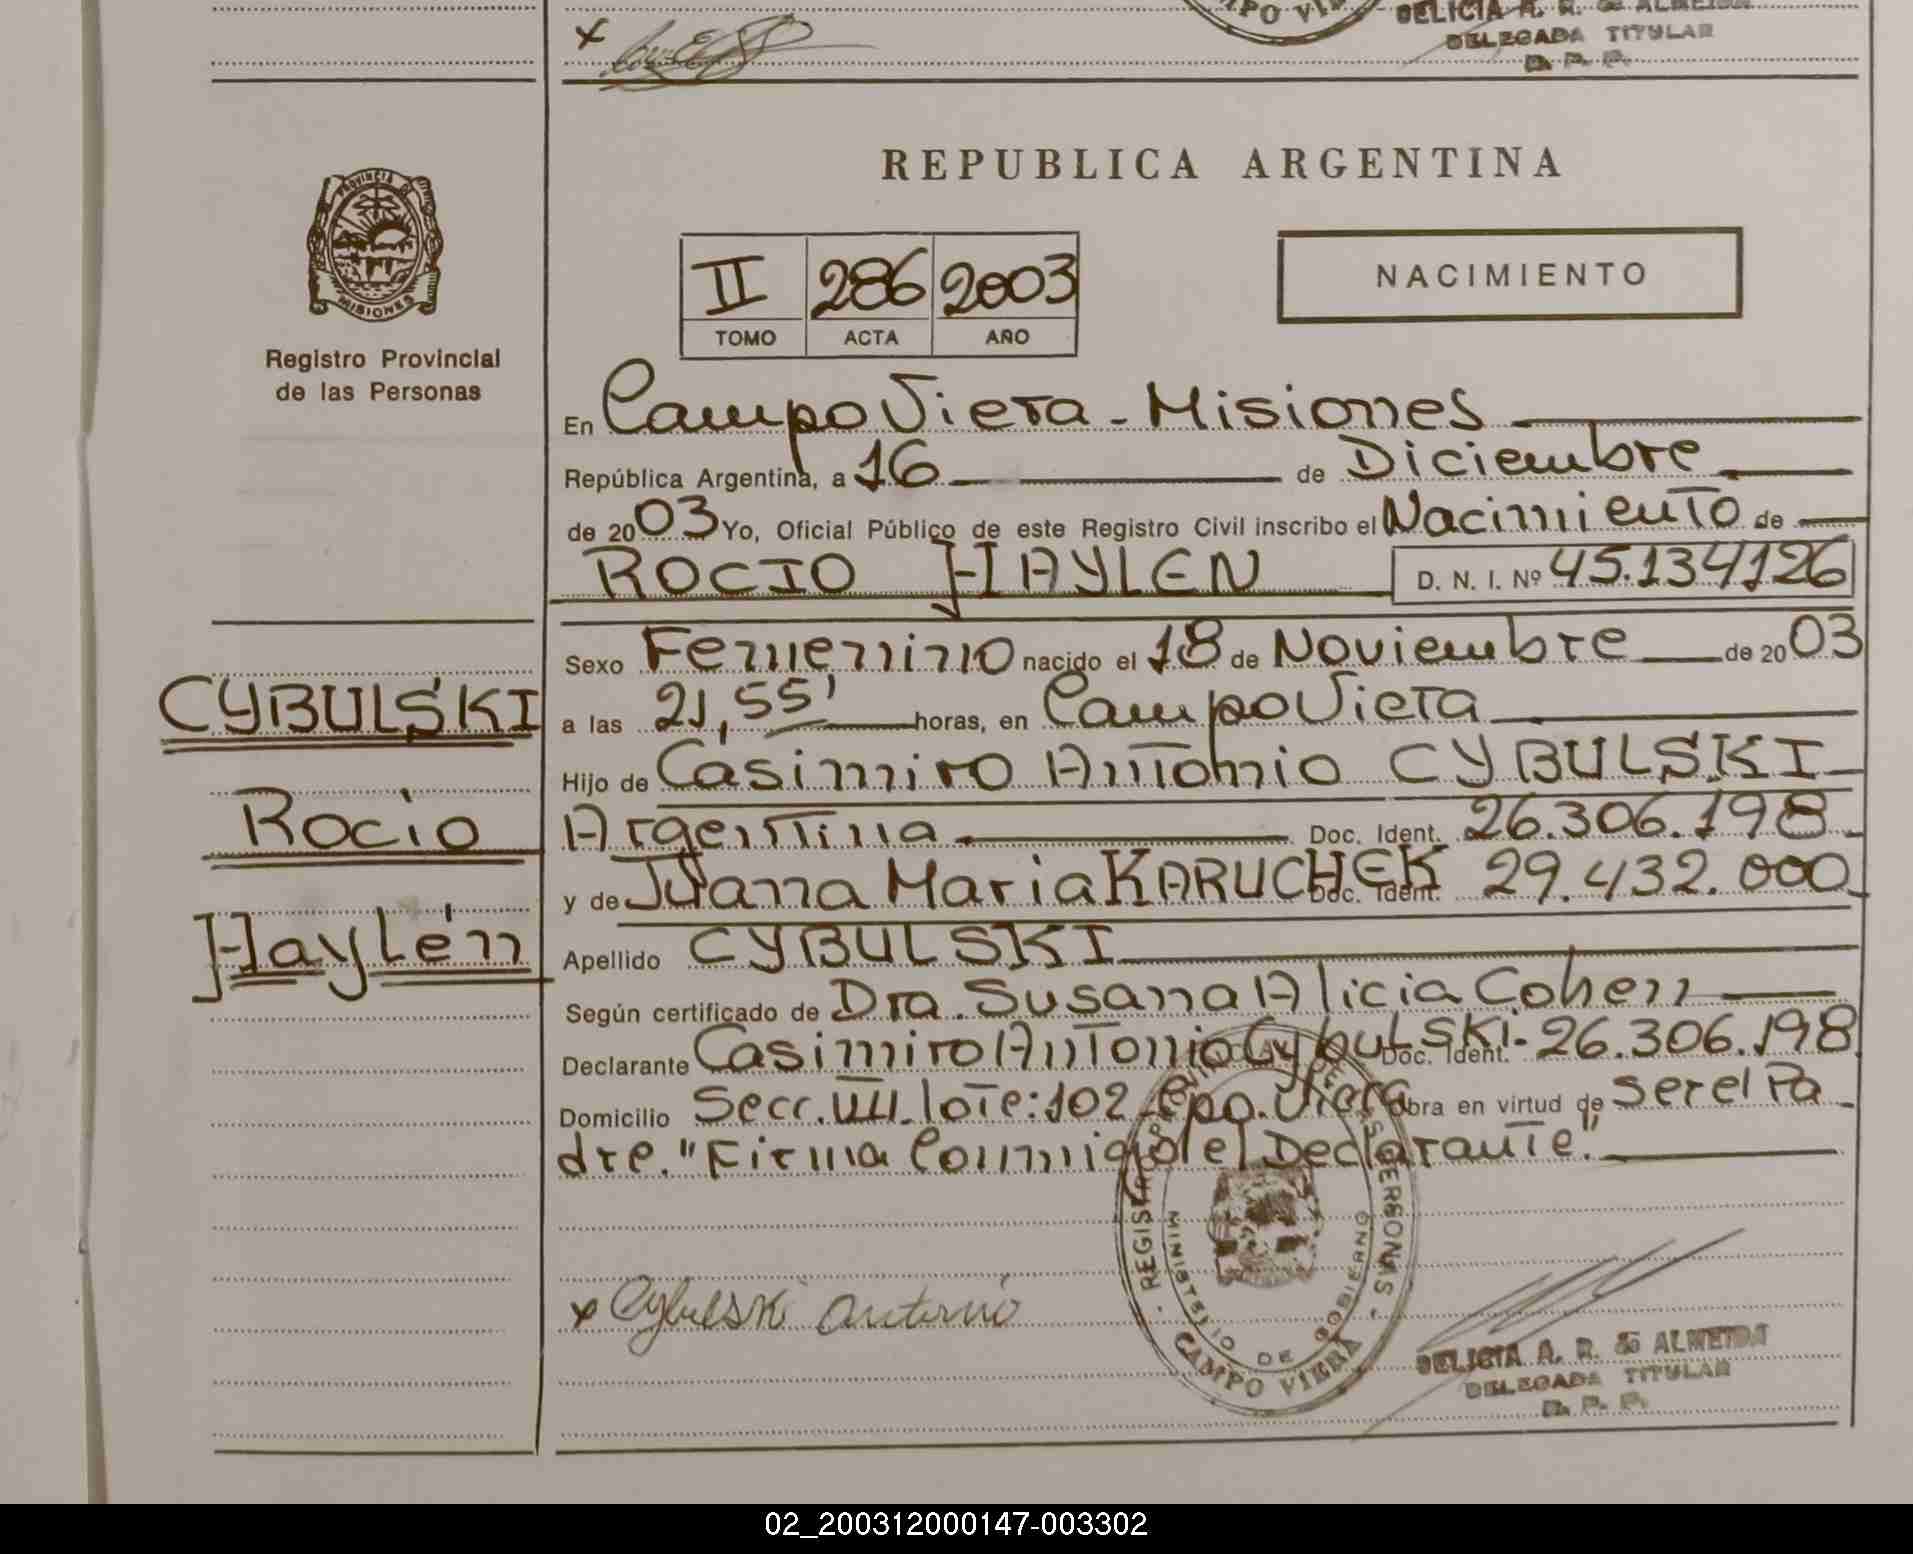 CAMPO VIERA
DELICIA A. R. de ALMEIDA
DELEGADA TITULAR
D. P. P.
PROVINCIA DE
MISIONES
Registro Provincial
de las Personas
REPUBLICA ARGENTINA
II 286 2003
TOMO ACTA AÑO
NACIMIENTO
En Campo Viera - Misiones
República Argentina, a 16 de Diciembre
de 2003 Yo, Oficial Público de este Registro Civil inscribo el Nacimiento de
ROCIO HAYLEN D. N. I. Nº 45.134126
Sexo Femenino nacido el 18 de Noviembre de 2003
CYBULSKI
a las 21,55' horas, en Campo Viera
Hijo de Casimiro Antonio CYBULSKI
Rocio
Argentina Doc. Ident. 26.306.198
y de Juana Maria KARUCHEK Doc. Ident. 29.432.000
Haylén
Apellido CYBULSKI
Según certificado de Dra. Susana Alicia Cohen
Declarante Casimiro Antonio Cybulski - Doc. Ident. 26.306.198
Domicilio Secc. VII lote: 102 Cpo. Viera obra en virtud de ser el Pa
dre. "Firma Conmigo el Declarante".
REGISTRO PROVINCIAL DE LAS PERSONAS
MINISTERIO DE GOBIERNO
CAMPO VIERA
x Cybulski Antonio
DELICIA A. R. de ALMEIDA
DELEGADA TITULAR
D. P. P.
02_200312000147-003302